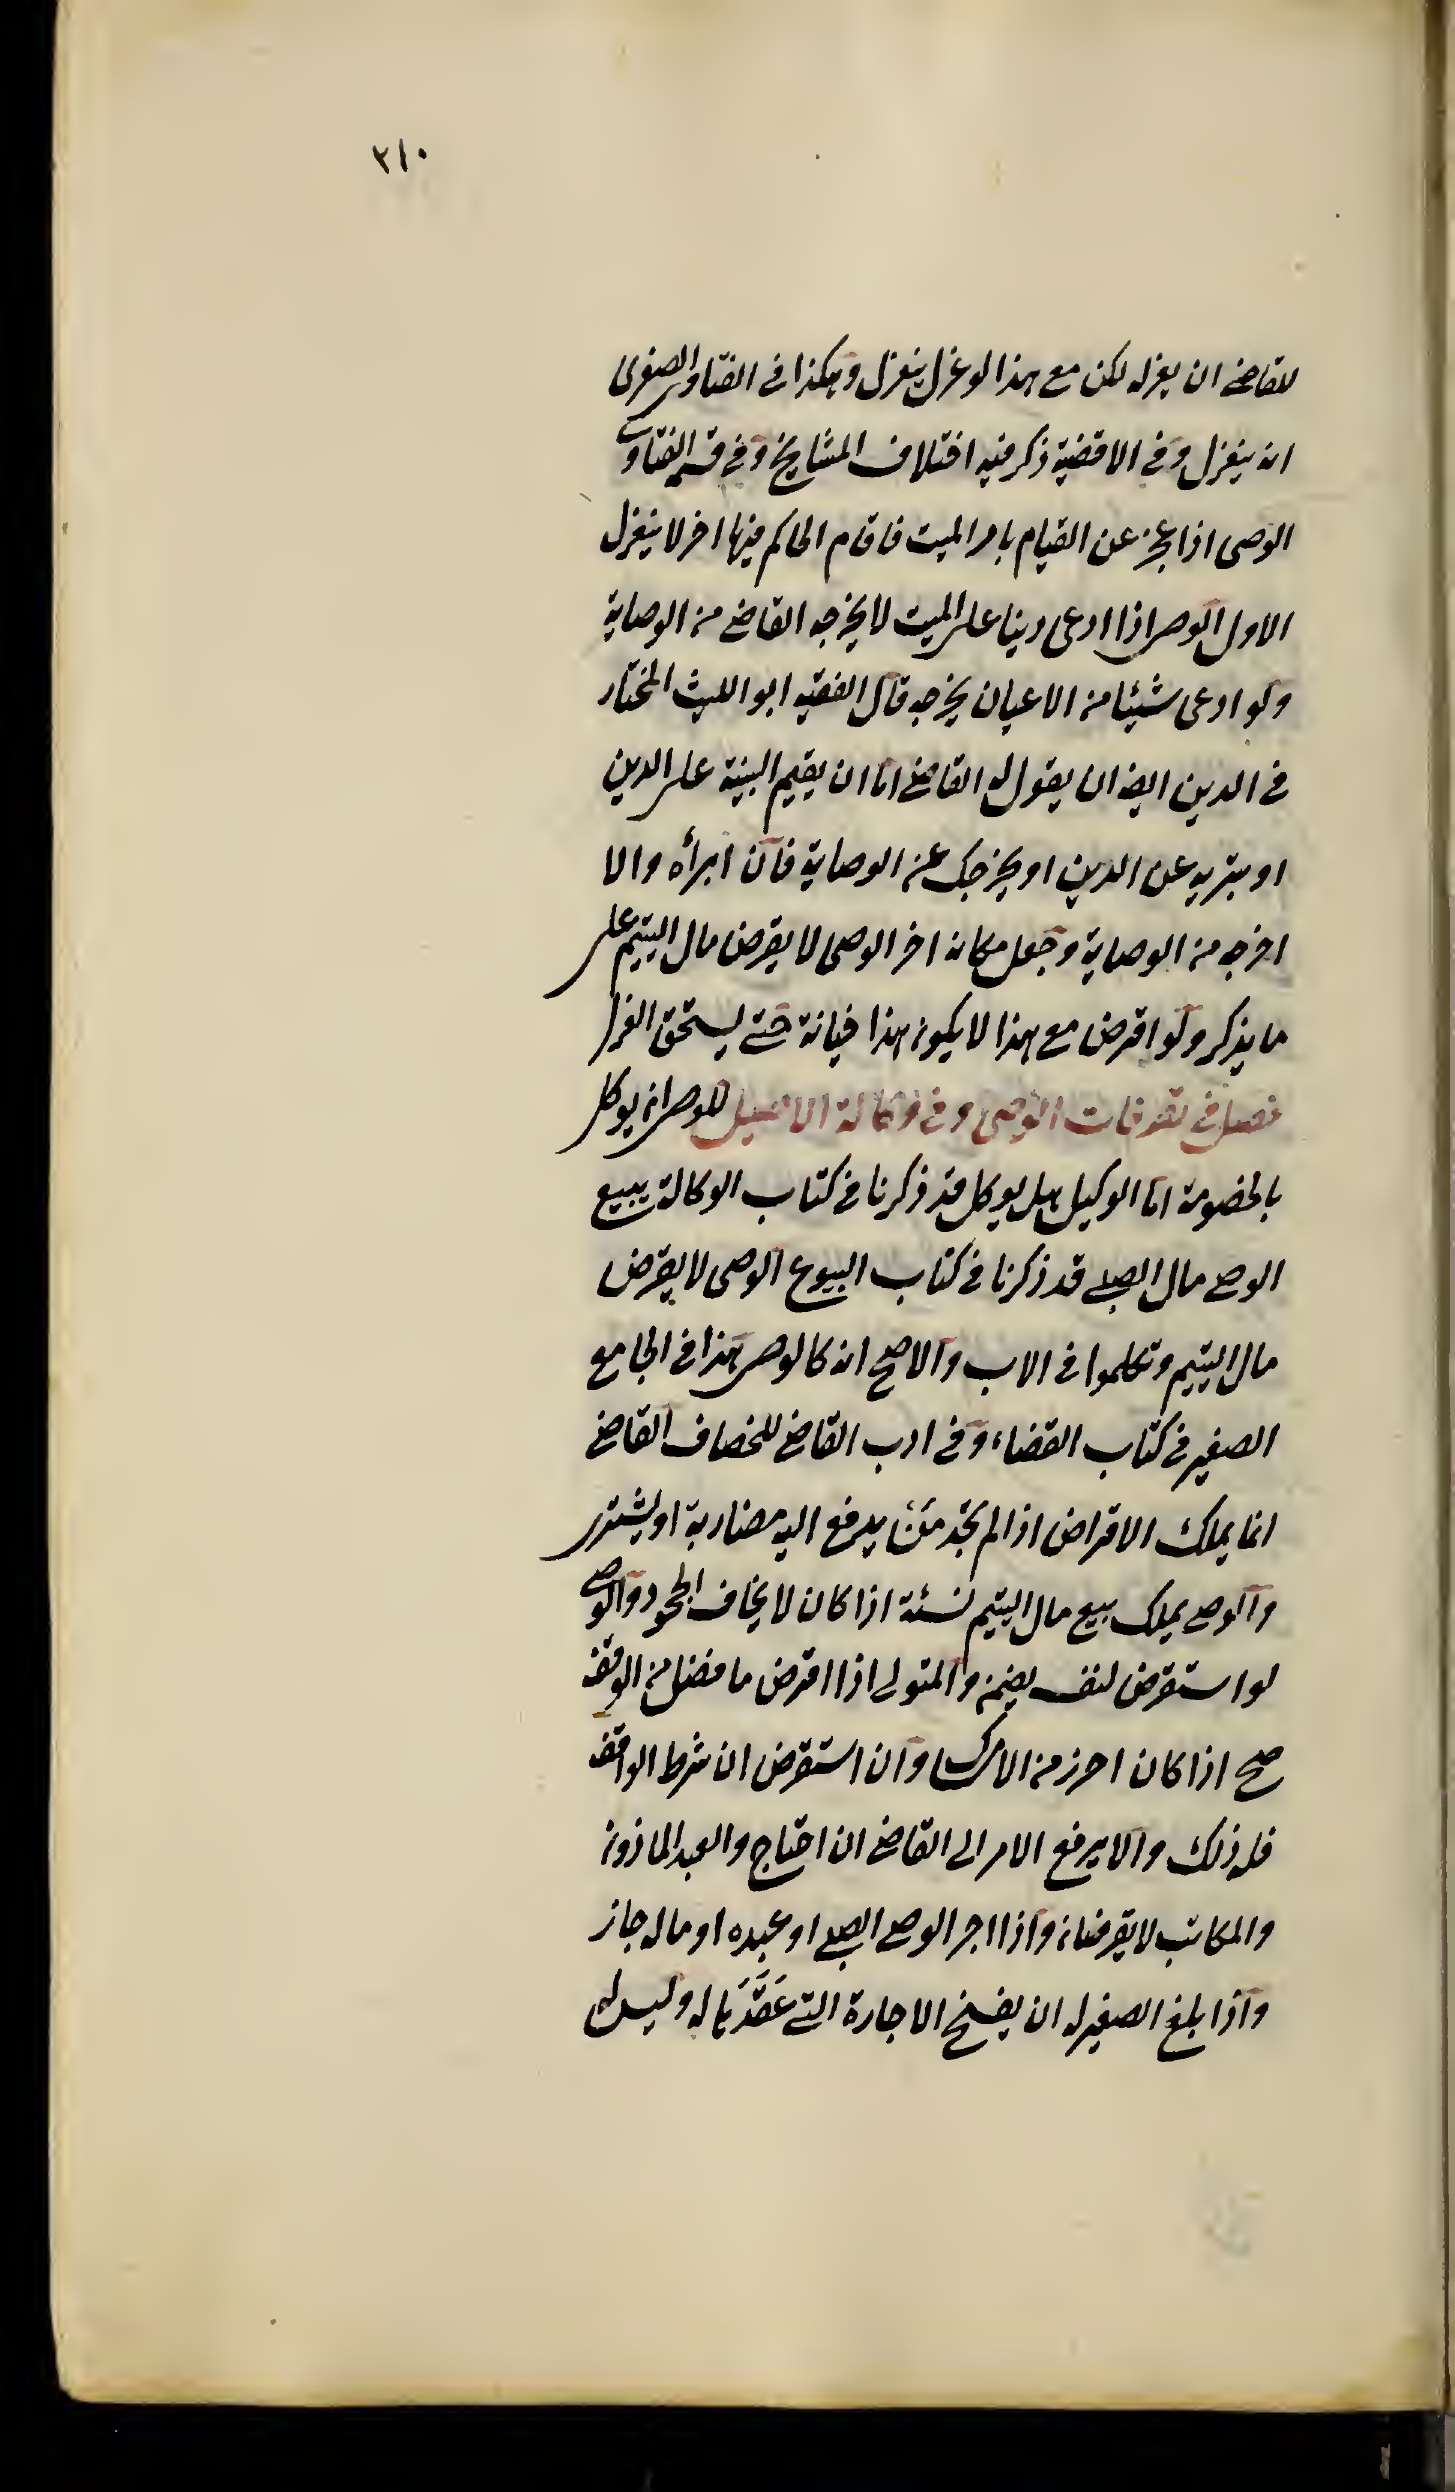 ٢١٠
للقاضى ان يعزله لكن مع هذا لو عزل ينعزل وهكذا فى الفتاوى الصغرى
انه ينعزل وفى الاقضية ذكر فيه اختلاف المشايخ وفى الفتاوى
الوصى اذا عجز عن القيام بامر الميت فاقام الحاكم فيها اخر لا ينعزل
الاول الوصى اذا ادعى دينا على الميت لا يخرجه القاضى من الوصاية
ولو ادعى شيئا من الاعيان يخرجه قال الفقيه ابو الليث المختار
فى الدين ايضا ان يقول له القاضى اما ان يقيم البينة على الدين
او تبريه عن الدين او يخرجك عن الوصاية فان ابرأه والا
اخرجه من الوصاية وجعل مكانه اخر الوصى لا يقرض مال اليتيم على
ما يذكر ولو اقرض مع هذا لا يكون هذا خيانة حتى يستحق العزل
فصل فى تصرفات الوصى وفى وكالة الاصيل للوصى ان يوكل
بالخصومة اما الوكيل هل يوكل قد ذكرنا فى كتاب الوكالة يبيع
الوصى مال الصبى قد ذكرنا فى كتاب البيوع الوصى لا يقرض
مال اليتيم وتكلموا فى الاب والاصح انه كالوصى هذا فى الجامع
الصغير فى كتاب القضاء وفى ادب القاضى للخصاف القاضى
انما يملك الاقراض اذا لم يجد من يدفع اليه مضاربة او يشترى
والوصى يملك بيع مال اليتيم نسئة اذا كان لا يخاف الجحود والوصى
لو استقرض لنفسه يضمن والمتولى اذا اقرض ما فضل من الوقف
صح اذا كان احرز من الامساك وان استقرض ان شرط الواقف
فله ذلك والا يرفع الامر الى القاضى ان احتاج والعبد الماذون
والمكاتب لا يقرضان واذا اجر الوصى الصبى او عبده او ماله جاز
واذا بلغ الصغير له ان يفسخ الاجارة التى عَقَدَ بماله وليس له